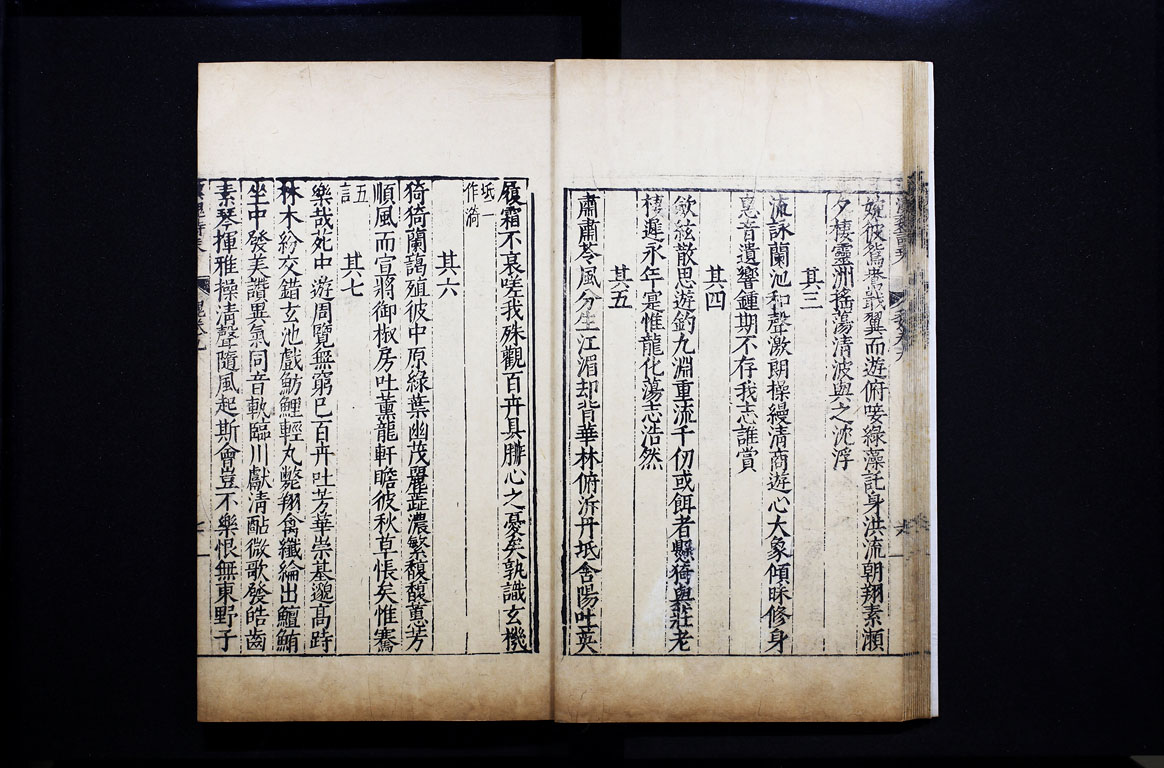 婉彼鴛鴦戢翼而遊俯唼綠藻託身洪流朝翔素瀨
夕棲靈洲搖蕩清波與之沈浮
其三
流詠蘭池和聲激朗操縵清商遊心大象傾昧修身
惠音遺響鍾期不存我志誰賞
其四
歛絃散思遊釣九淵重流千仞或餌者懸猗與莊老
棲遲永年寔惟龍化蕩志浩然
其五
肅肅苓風分生江湄却背華林俯泝丹坻含陽吐英
履霜不衰嗟我殊觀百卉具腓心之憂矣孰識玄機
坻一
作漪
其六
猗猗蘭藹殖彼中原綠葉幽茂麗蘂濃繁馥馥蕙芳
順風而宣將御椒房吐薰龍軒瞻彼秋草悵矣惟騫
五
言
其七
樂哉苑中遊周覽無窮已百卉吐芳華崇基邈高跱
林木紛交錯玄池戲魴鯉輕丸斃翔禽纖綸出鱣鮪
坐中發美讚異氣同音軌臨川獻清酤微歌發皓齒
素琴揮雅操清聲隨風起斯會豈不樂恨無東野子